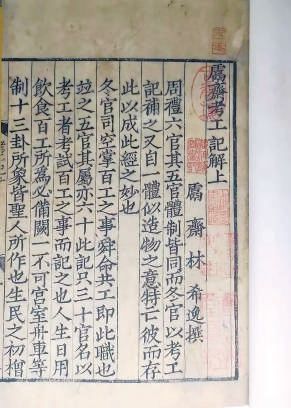 鬳齋考工記解上
鬳齋林希逸撰
周禮六官其五官體制皆同而冬官以考工
記補之又自一體似造物之意特亡彼而存
此以成此經之妙也
冬官司空掌百工之事舜命共工即此職也
並之五官其屬亦六十此記只三十官名以
考工者考試百工之事而記之也人生日用
飲食百工所為必備闕一不可宮室舟車等
制十三卦所象皆聖人所作也生民之初檜